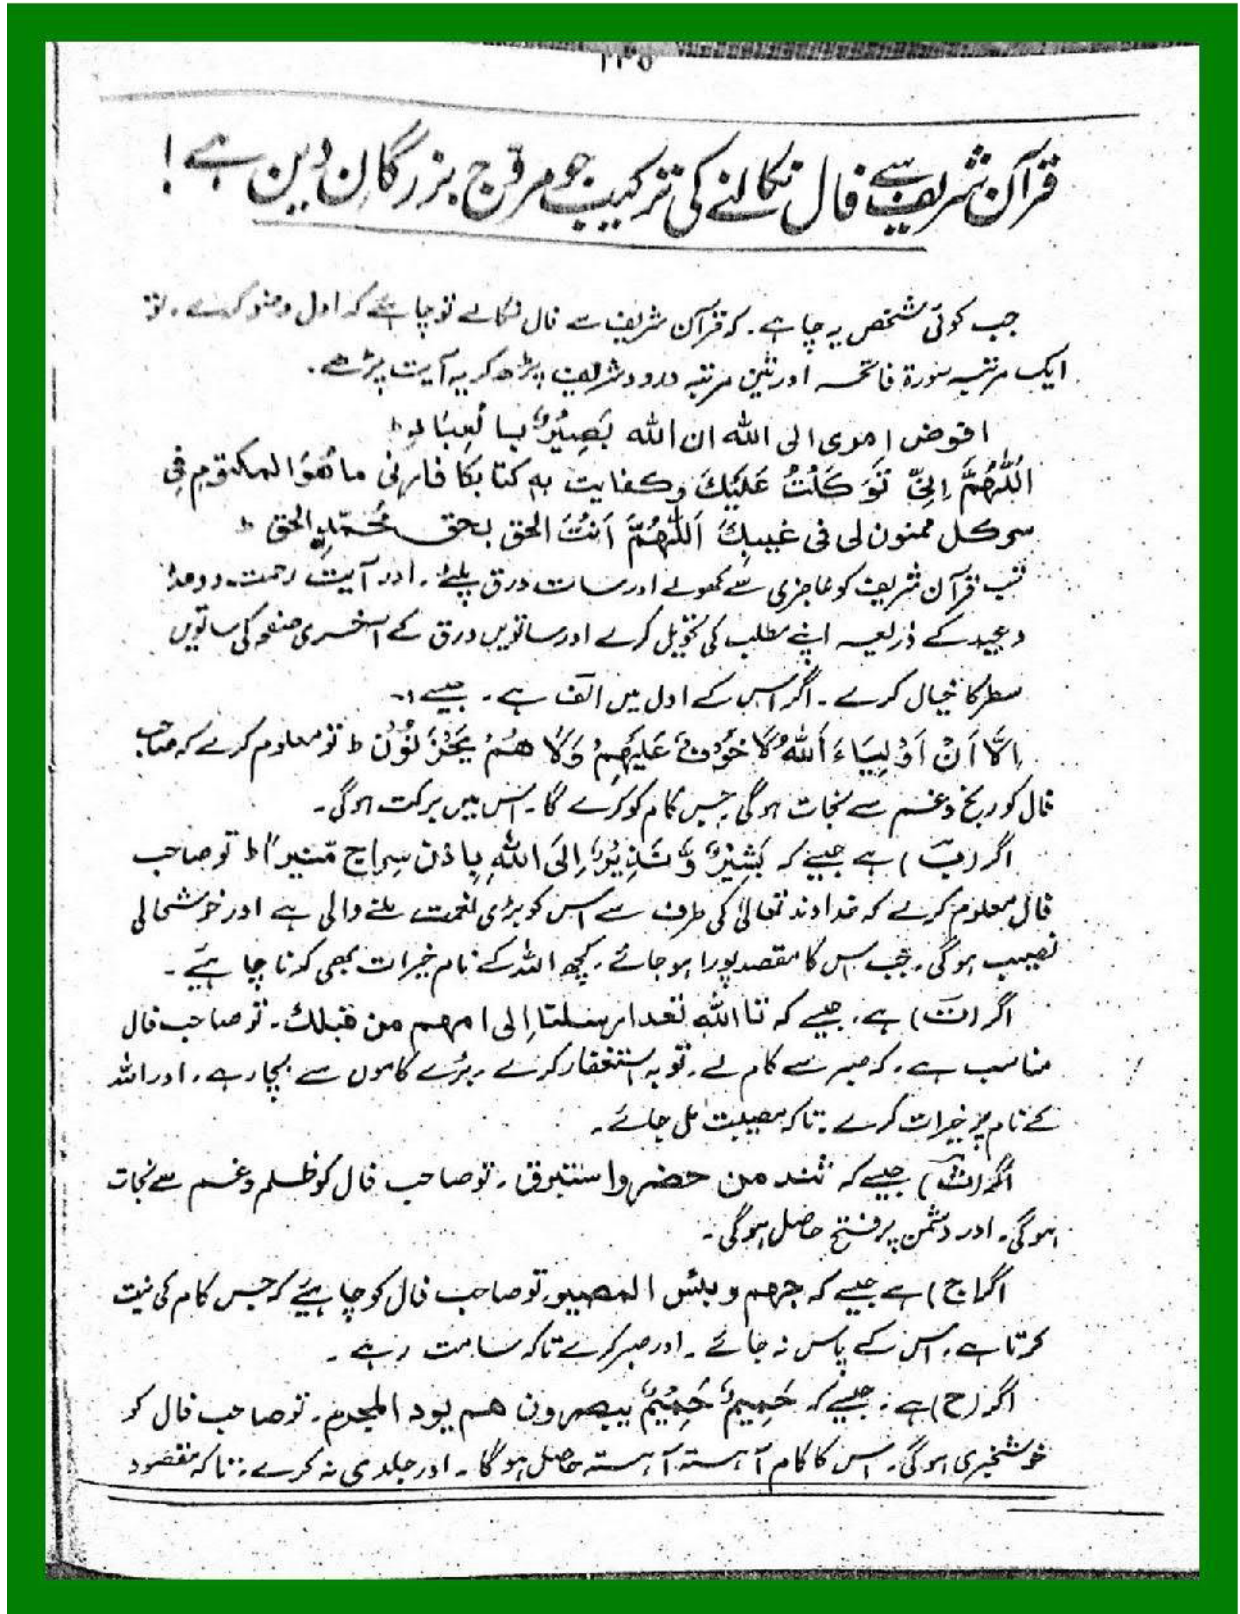 ۲۳۵
قرآن شریف سے فال نکالنے کی ترکیب جو مروج بزرگان دین ہے!
جب کوئی شخص یہ چاہے۔ کہ قرآن شریف سے فال نکالے تو چاہئے کہ اول وضو کرے۔ تو
ایک مرتبہ سورۃ فاتحہ اور تین مرتبہ درود شریف پڑھ کر یہ آیت پڑھے۔
افوض امری الی اللہ ان اللہ بَصِیْرٌ بِا لْعِبَادِ ط
اَللّٰھُمَّ اِنِّی تَوَکَلْتُ عَلَیْکَ وکفایت بہ کتا بکا فارنی ما ھُوَ المکتوم فِی
سر کل ممنون لی فی غیبِکَ اَللّٰھُمَّ اَنْتَ الحق بحق مُحَمَّدٍ الحق ط
تب قرآن شریف کو عاجزی سے کھولے اور سات ورق پلٹے۔ اور آیت رحمت و وعدۂ
وعید کے ذریعہ اپنے مطلب کی تحویل کرے اور ساتویں ورق کے آخری صفحہ کی ساتویں
سطر کا خیال کرے۔ اگر اس کے اول میں الف ہے۔ جیسے :۔
اِلَّا اَنَّ اَوْلِیَاءَ اَللّٰہُ لَا خَوْفٌ عَلَیْھِمْ وَلَا ھُمْ یَحْزَنُوْنْ ط تو معلوم کرے کہ صاحب
فال کو رنج و غم سے نجات ہوگی جس کام کو کرے گا۔ اس میں برکت ہوگی۔
اگر (ب) ہے جیسے کہ بَشِیْرٌ وَّ نَذِیْرٌ اِلَی اللّٰہِ بِاِذن سِراج مّنیراً ط تو صاحب
فال معلوم کرے کہ خداوند تعالیٰ کی طرف سے اس کو بڑی نعمت ملنے والی ہے اور خوشحالی
نصیب ہوگی۔ جب اس کا مقصد پورا ہو جائے۔ کچھ اللہ کے نام خیرات بھی کرنا چاہیئے۔
اگر (ت) ہے۔ جیسے کہ تا اللہ لقد ارسلنا اِلی امھم من قبلک۔ تو صاحب فال
مناسب ہے۔ کہ صبر سے کام لے۔ توبہ استغفار کرے۔ بُرے کاموں سے بچا رہے۔ اور اللہ
کے نام پر خیرات کرے۔ تاکہ مصیبت ٹل جائے۔
اگر (ث) جیسے کہ ثند من حضر واستبرق۔ تو صاحب فال کو ظلم و غم سے نجات
ہوگی۔ اور دشمن پر فتح حاصل ہوگی۔
اگر (ج) ہے جیسے کہ جھم و بئس المصیو۔ تو صاحب فال کو چاہیئے کہ جس کام کی نیت
کرتا ہے۔ اس کے پاس نہ جائے۔ اور صبر کرے تاکہ سلامت رہے۔
اگر (ح) ہے۔ جیسے کہ حَمِیمٌ حَمِیْمٌ یبصرون ھم یود المجرم۔ تو صاحب فال کو
خوشخبری ہوگی۔ اس کا کام آہستہ آہستہ حاصل ہوگا۔ اور جلدی نہ کرے۔ تاکہ مقصود